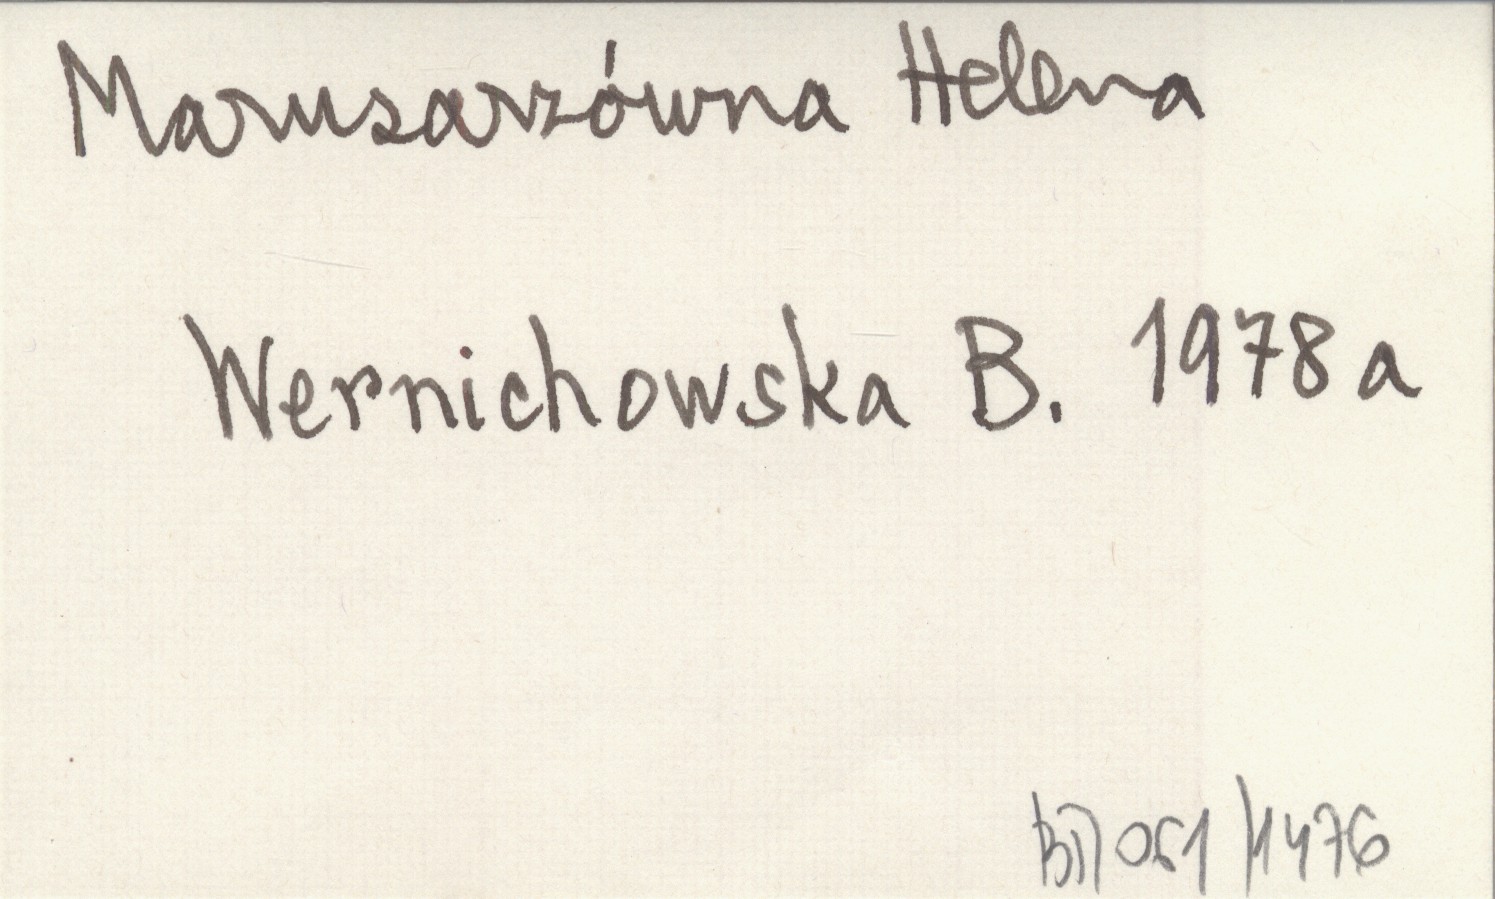 Marusarzówna Helena
Wernichowska B. 1978a
051/1476